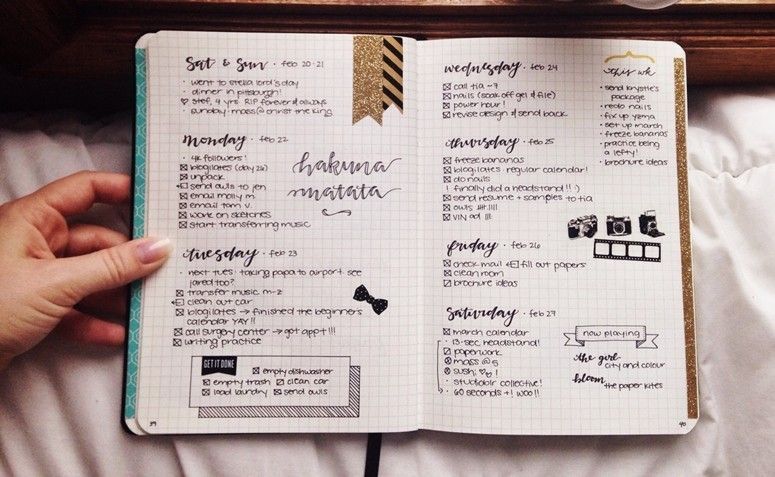 Sat & Sun · feb 20·21
· went to stella lord's day
· dinner in pittsburgh!
♡ stef, 9 yrs. RIP forever & always
· sunday · mass @ christ the king
monday · feb 22
· 4k followers!
blogilates (day 26)
unpack
send owls to jen
email molly m.
email tom v.
work on sketches
start transferring music
hakuna
matata
tuesday · feb 23
· next tues: taking papa to airport. see
jared too?
transfer music m-z
clean out car
blogilates → finished the beginners
calendar YAY!!
call surgery center → got appt!!!
writing practice
GET IT DONE
empty dishwasher
empty trash clean car
load laundry send owls
39
wednesday · feb 24
call tia ~7
nails (soak off gel & file)
power hour!
revise design & send back
thursday · feb 25
freeze bananas
blogilates · regular calendar!
do nails
! finally did a headstand!! :)
send resume + samples to tia
owls
friday · feb 26
check mail fill out papers
clean room
brochure ideas
Saturday · feb 27
march calendar
· 13-sec. headstand!
paperwork
mass @ 5
sushi
· studio collective!
· 60 seconds +! woo!!
this wk
· send krystle's
package
· redo nails
· fix up yzma
· set up march
· freeze bananas
· practice being
a lefty!
· brochure ideas
now playing
the girl · city and colour
bloom · the paper kites
40